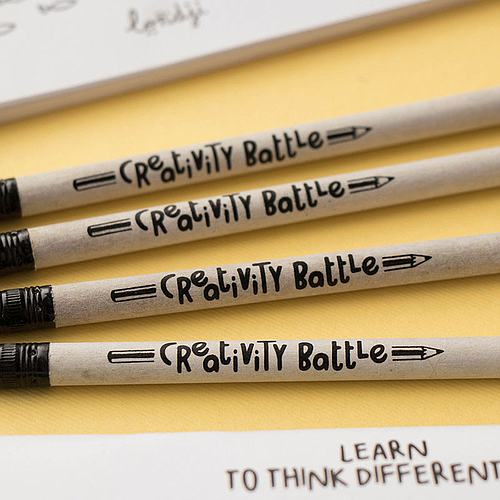 CReativiTY Battle
CReativiTY Battle
CReativiTY Battle
CReativiTY Battle
LEARN
TO THINK DIFFERENT